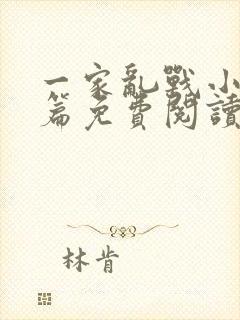 一家亂戰小
篇免費閱讀
林肯